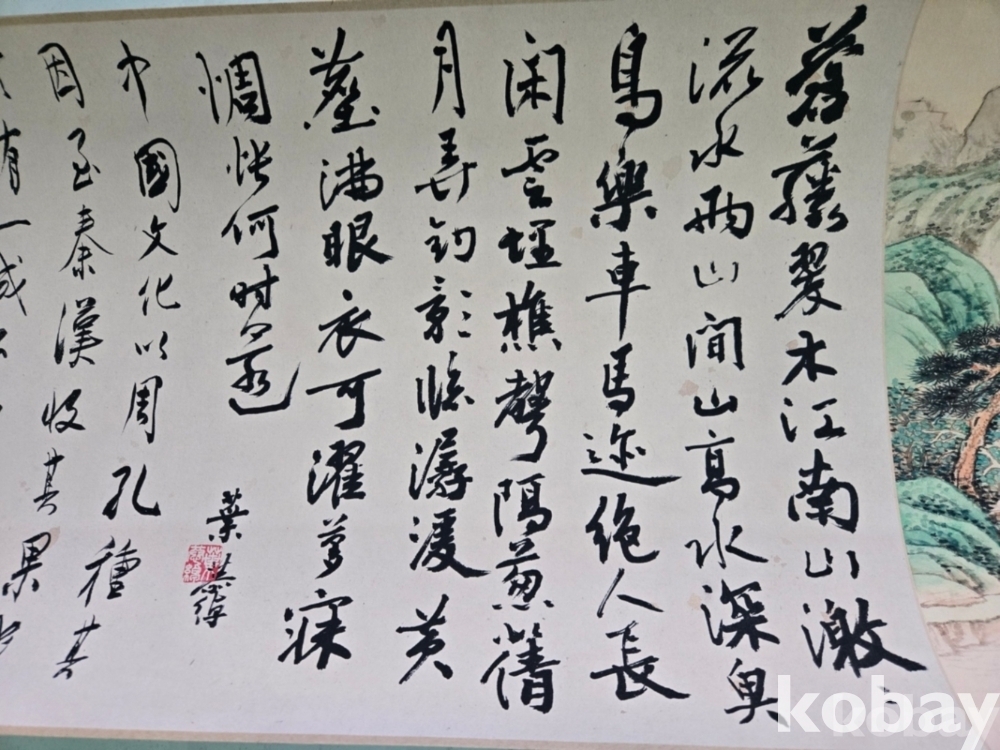 蒼藤翠木江南山激〻
流水兩山間山高水深魚
鳥樂車馬迹絶人長
閑雲埋樵聲隔葱蒨
月弄釣影臨潺湲黄
塵滿眼衣可濯夢寐
惆悵何时還
葉恭綽
中國文化以周孔種其
因至秦漢收其果
有一或
kobay